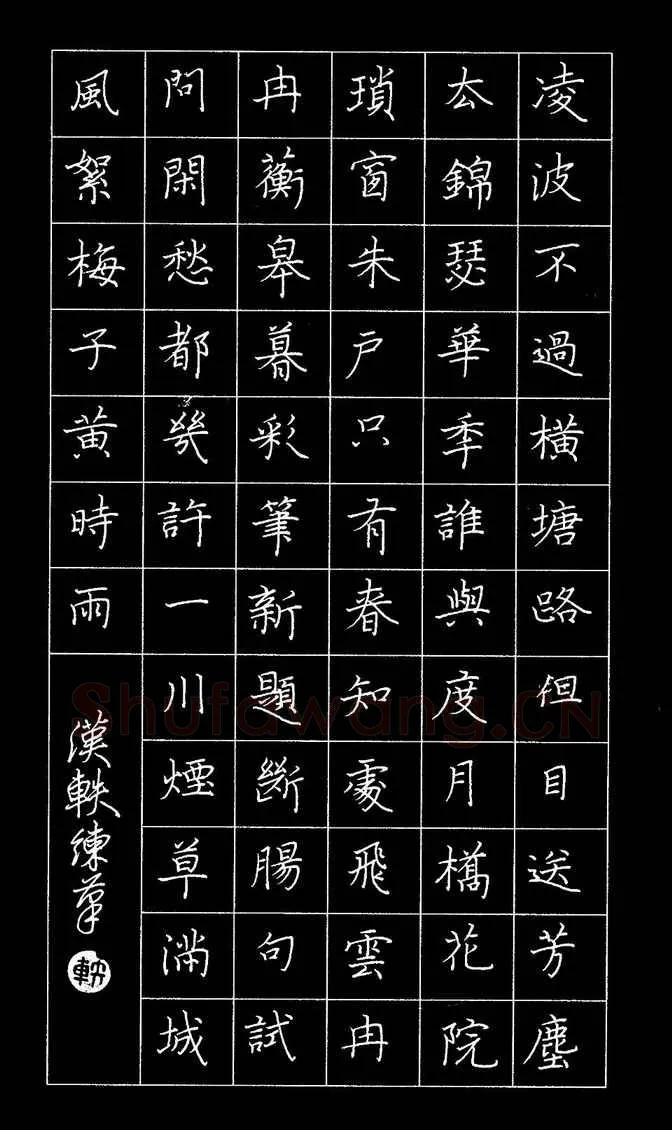 凌波不過橫塘路但目送芳塵
厺錦瑟華秊誰與度月橋花院
瑣窗朱戶只有春知處飛雲冉
冉蘅皋暮彩筆新題斷腸句試
問閑愁都幾許一川煙草滿城
風絮梅子黃時雨
漢軼練筆
Shufawang.CN